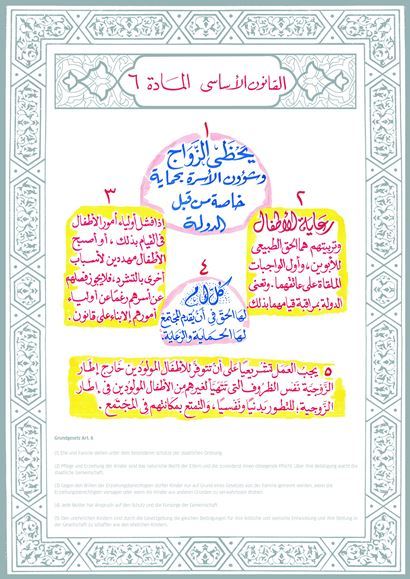 القانون الأساسى المادة ٦
١
يحظى الزواج
وشؤون الأسرة بحماية
خاصة من قبل
الدولة
٢
رعاية الأطفال
وتربيتهم هما الحق الطبيعي
للأبوين، وأول الواجبات
الملقاة على عاتقهما. وتعنى
الدولة بمراقبة قيامهما بذلك.
٣
إذا فشل أولياء أمور الأطفال
في القيام بذلك، أو أصبح
الأطفال مهددين لأسباب
أخرى بالتشرد، فلا يجوز فصلهم
عن أسرهم رغمًا عن أولياء
أمورهم إلا بناء على قانون.
٤
كل أم
لها الحق في أن يقدم المجتمع
لها الحماية والرعاية.
٥ يجب العمل تشريعيا على أن تتوفر للأطفال المولودين خارج إطار
الزوجية نفس الظروف التي تتهيأ لغيرهم من الأطفال المولودين في إطار
الزوجية، للتطور بدنيا ونفسيا، والتمتع بمكانتهم في المجتمع.
Grundgesetz Art. 6
(1) Ehe und Familie stehen unter dem besonderen Schutze der staatlichen Ordnung.
(2) Pflege und Erziehung der Kinder sind das natürliche Recht der Eltern und die zuvörderst ihnen obliegende Pflicht. Über ihre Betätigung wacht die
staatliche Gemeinschaft.
(3) Gegen den Willen der Erziehungsberechtigten dürfen Kinder nur auf Grund eines Gesetzes von der Familie getrennt werden, wenn die
Erziehungsberechtigten versagen oder wenn die Kinder aus anderen Gründen zu verwahrlosen drohen.
(4) Jede Mutter hat Anspruch auf den Schutz und die Fürsorge der Gemeinschaft.
(5) Den unehelichen Kindern sind durch die Gesetzgebung die gleichen Bedingungen für ihre leibliche und seelische Entwicklung und ihre Stellung in
der Gesellschaft zu schaffen wie den ehelichen Kindern.